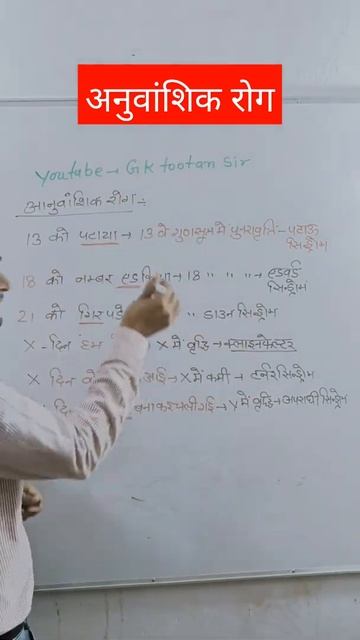 अनुवांशिक रोग
Youtube → GK tootan sir
आनुवांशिक रोग :-
13 को पटाया → 13 वे गुणसूत्र मे पुनरावृति - पटाऊ
सिन्ड्रोम
18 को नम्बर एड किया → 18 " " " → एडवर्ड
सिन्ड्रोम
21 को गिर " डाउन सिन्ड्रोम
X - दिन हम X मे वृद्धि → क्लाइनफेल्टर
X दिन आई → X मे कमी → टर्नर सिन्ड्रोम
बनाकर चली गई → Y मे वृद्धि → अपराधी सिन्ड्रोम